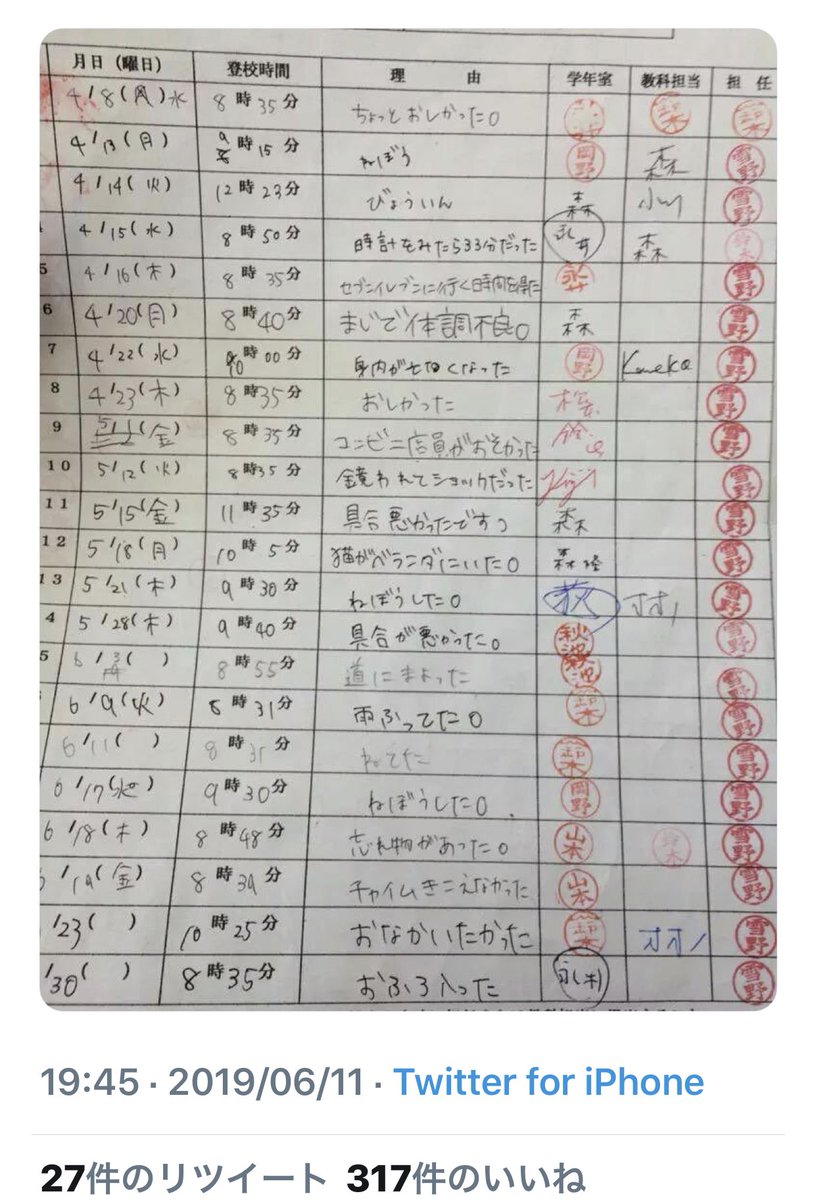 月日(曜日) 登校時間 理 由 学年室 教科担当 担 任
4/8(月)水 8時35分 ちょっとおしかった。 鈴木 鈴木
4/13(月) 9時15分 ねぼう 岡野 森 雪野
4/14(火) 12時23分 びょういん 森 小川 雪野
4/15(水) 8時50分 時計をみたら33分だった 永井 森 鈴木
5 4/16(木) 8時35分 セブンイレブンに行く時間を得た 永井 雪野
6 4/20(月) 8時40分 まじで体調不良。 森 雪野
7 4/22(水) 10時00分 身内が亡くなった 岡野 Kaneko 雪野
8 4/23(木) 8時35分 おしかった 雪野
9 5/1(金) 8時35分 コンビニ店員がおそかった 雪野
10 5/12(火) 8時35分 鏡われてショックだった 雪野
11 5/15(金) 11時35分 具合悪かったですっ 森 雪野
12 5/18(月) 10時5分 猫がベランダにいた。 森 雪野
13 5/21(木) 9時30分 ねぼうした。 荻 オオノ 雪野
4 5/28(木) 9時40分 具合が悪かった。 秋池 雪野
5 6/3( ) 8時55分 道にまよった 秋池 雪野
6/9(火) 8時31分 雨ふってた。 鈴木 雪野
6/11( ) 8時31分 ねてた 鈴木 雪野
6/17(水) 9時30分 ねぼうした。 岡野 雪野
6/18(木) 8時48分 忘れ物があった。 山本 鈴木 雪野
/19(金) 8時39分 チャイムきこえなかった 山本 雪野
/23( ) 10時25分 おなかいたかった 鈴木 オオノ 雪野
/30( ) 8時35分 おふろ入った 永井 雪野
19:45 · 2019/06/11 · Twitter for iPhone
27件のリツイート 317件のいいね